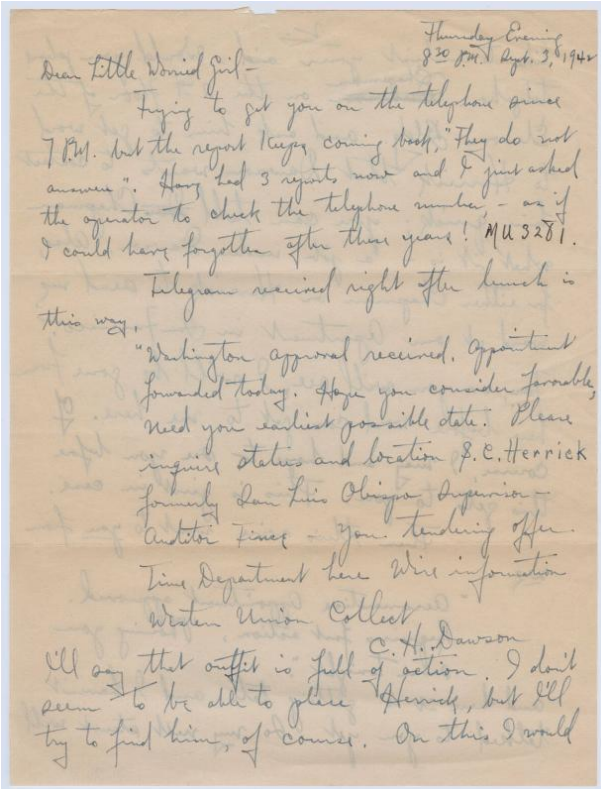 Thursday Evening
8 30 P.M. Sept. 3, 1942
Dear Little Worried Girl –
Trying to get you on the telephone since
7 P.M. but the report keeps coming back, "They do not
answer". Have had 3 reports now and I just asked
the operator to check the telephone number, – as if
I could have forgotten after these years! MU 3281.
Telegram received right after lunch is
this way,
"Washington approval received. Appointment
forwarded today. Hope you consider favorable,
need you earliest possible date. Please
inquire status and location S. C. Herrick
formerly San Luis Obispo Supervisor –
Auditor – You tendering offer
Time Department here Wire information
Western Union Collect
C. H. Dawson
I'll say that outfit is full of action. I don't
seem to be able to place Herrick, but I'll
try to find him, of course. On this I would